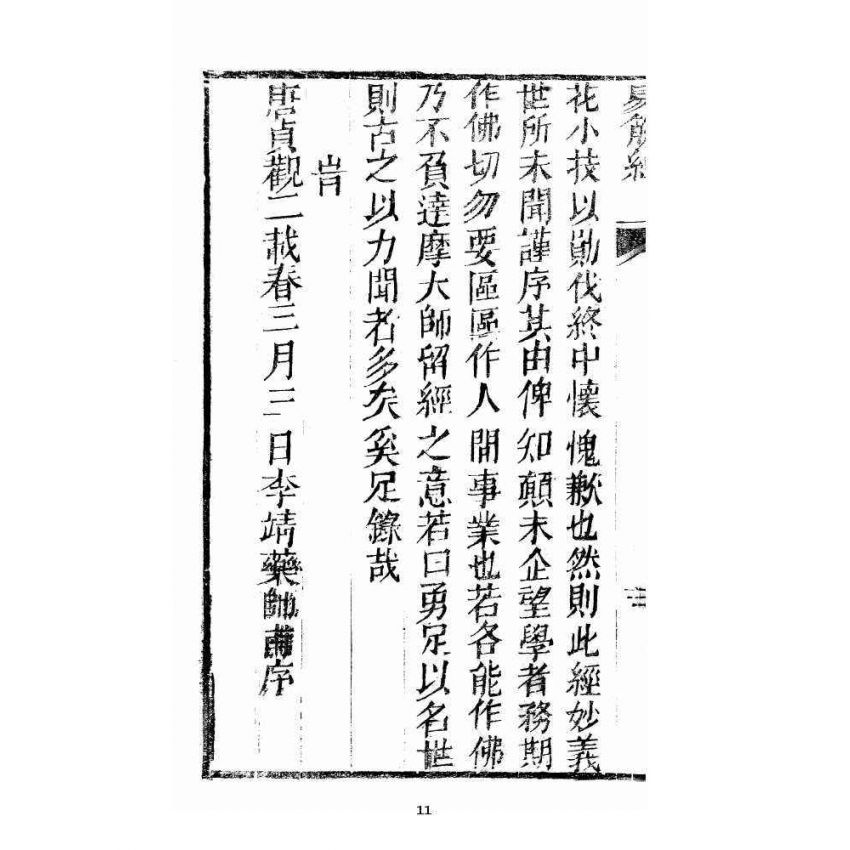 易筋經
花小技以勛伐終中懷愧歉也然則此經妙義
世所未聞謹序其由俾知顛末企望學者務期
作佛切勿要區區作人間事業也若各能作佛
乃不負達摩大師留經之意若曰勇足以名世
則古之以力聞者多矣奚足錄哉
旹
唐貞觀二載春三月三日李靖藥師甫序
11